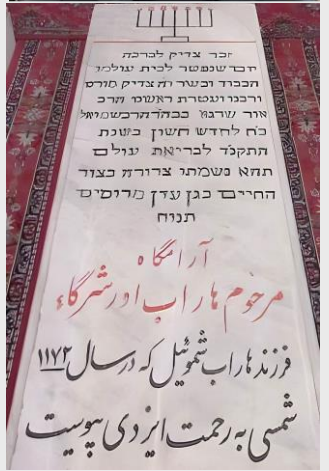 זכר צדיק לברכה
יום שנפטר לבית עולמו
הכבוד וכשר וה צדיק מורם
ורבנו ועטרת ראשנו הרב
אור שרגא בכהה הרב שמואל
כ״ח לחדש חשון בשנת
התקנד לבריאת עולם
תהא נשמתו צרורה בצור
החיים בגן עדן מרומים
תנוח
آرامگاه
مرحوم هاراب اورشرگاء
فرزند هاراب شموئیل که در سال ۱۱۷۲
شمسی به رحمت ایزدی پیوست